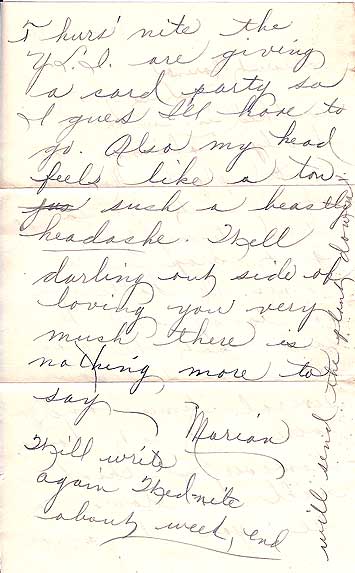 Thurs' nite the
Y.L.I. are giving
a card party so
I gues I'll have to
go. Also my head
feels like a ton
jus such a beastly
headashe. Well
darling out side of
loving you very
much there is
nothing more to
say
Marian
Will write
again Wed-nite
about week, end
will send the plenty down.